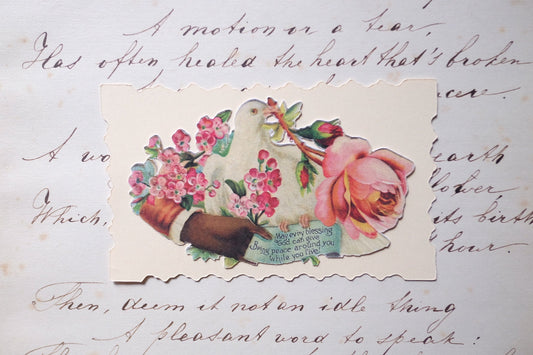 A motion or a tear,
Has often healed the heart that's broken
cere.
A wo earth
lower
Which, its birth
hour.
May every blessing
God can give
Bring peace around you
while you live!
Then, deem it not an idle thing
A pleasant word to speak: